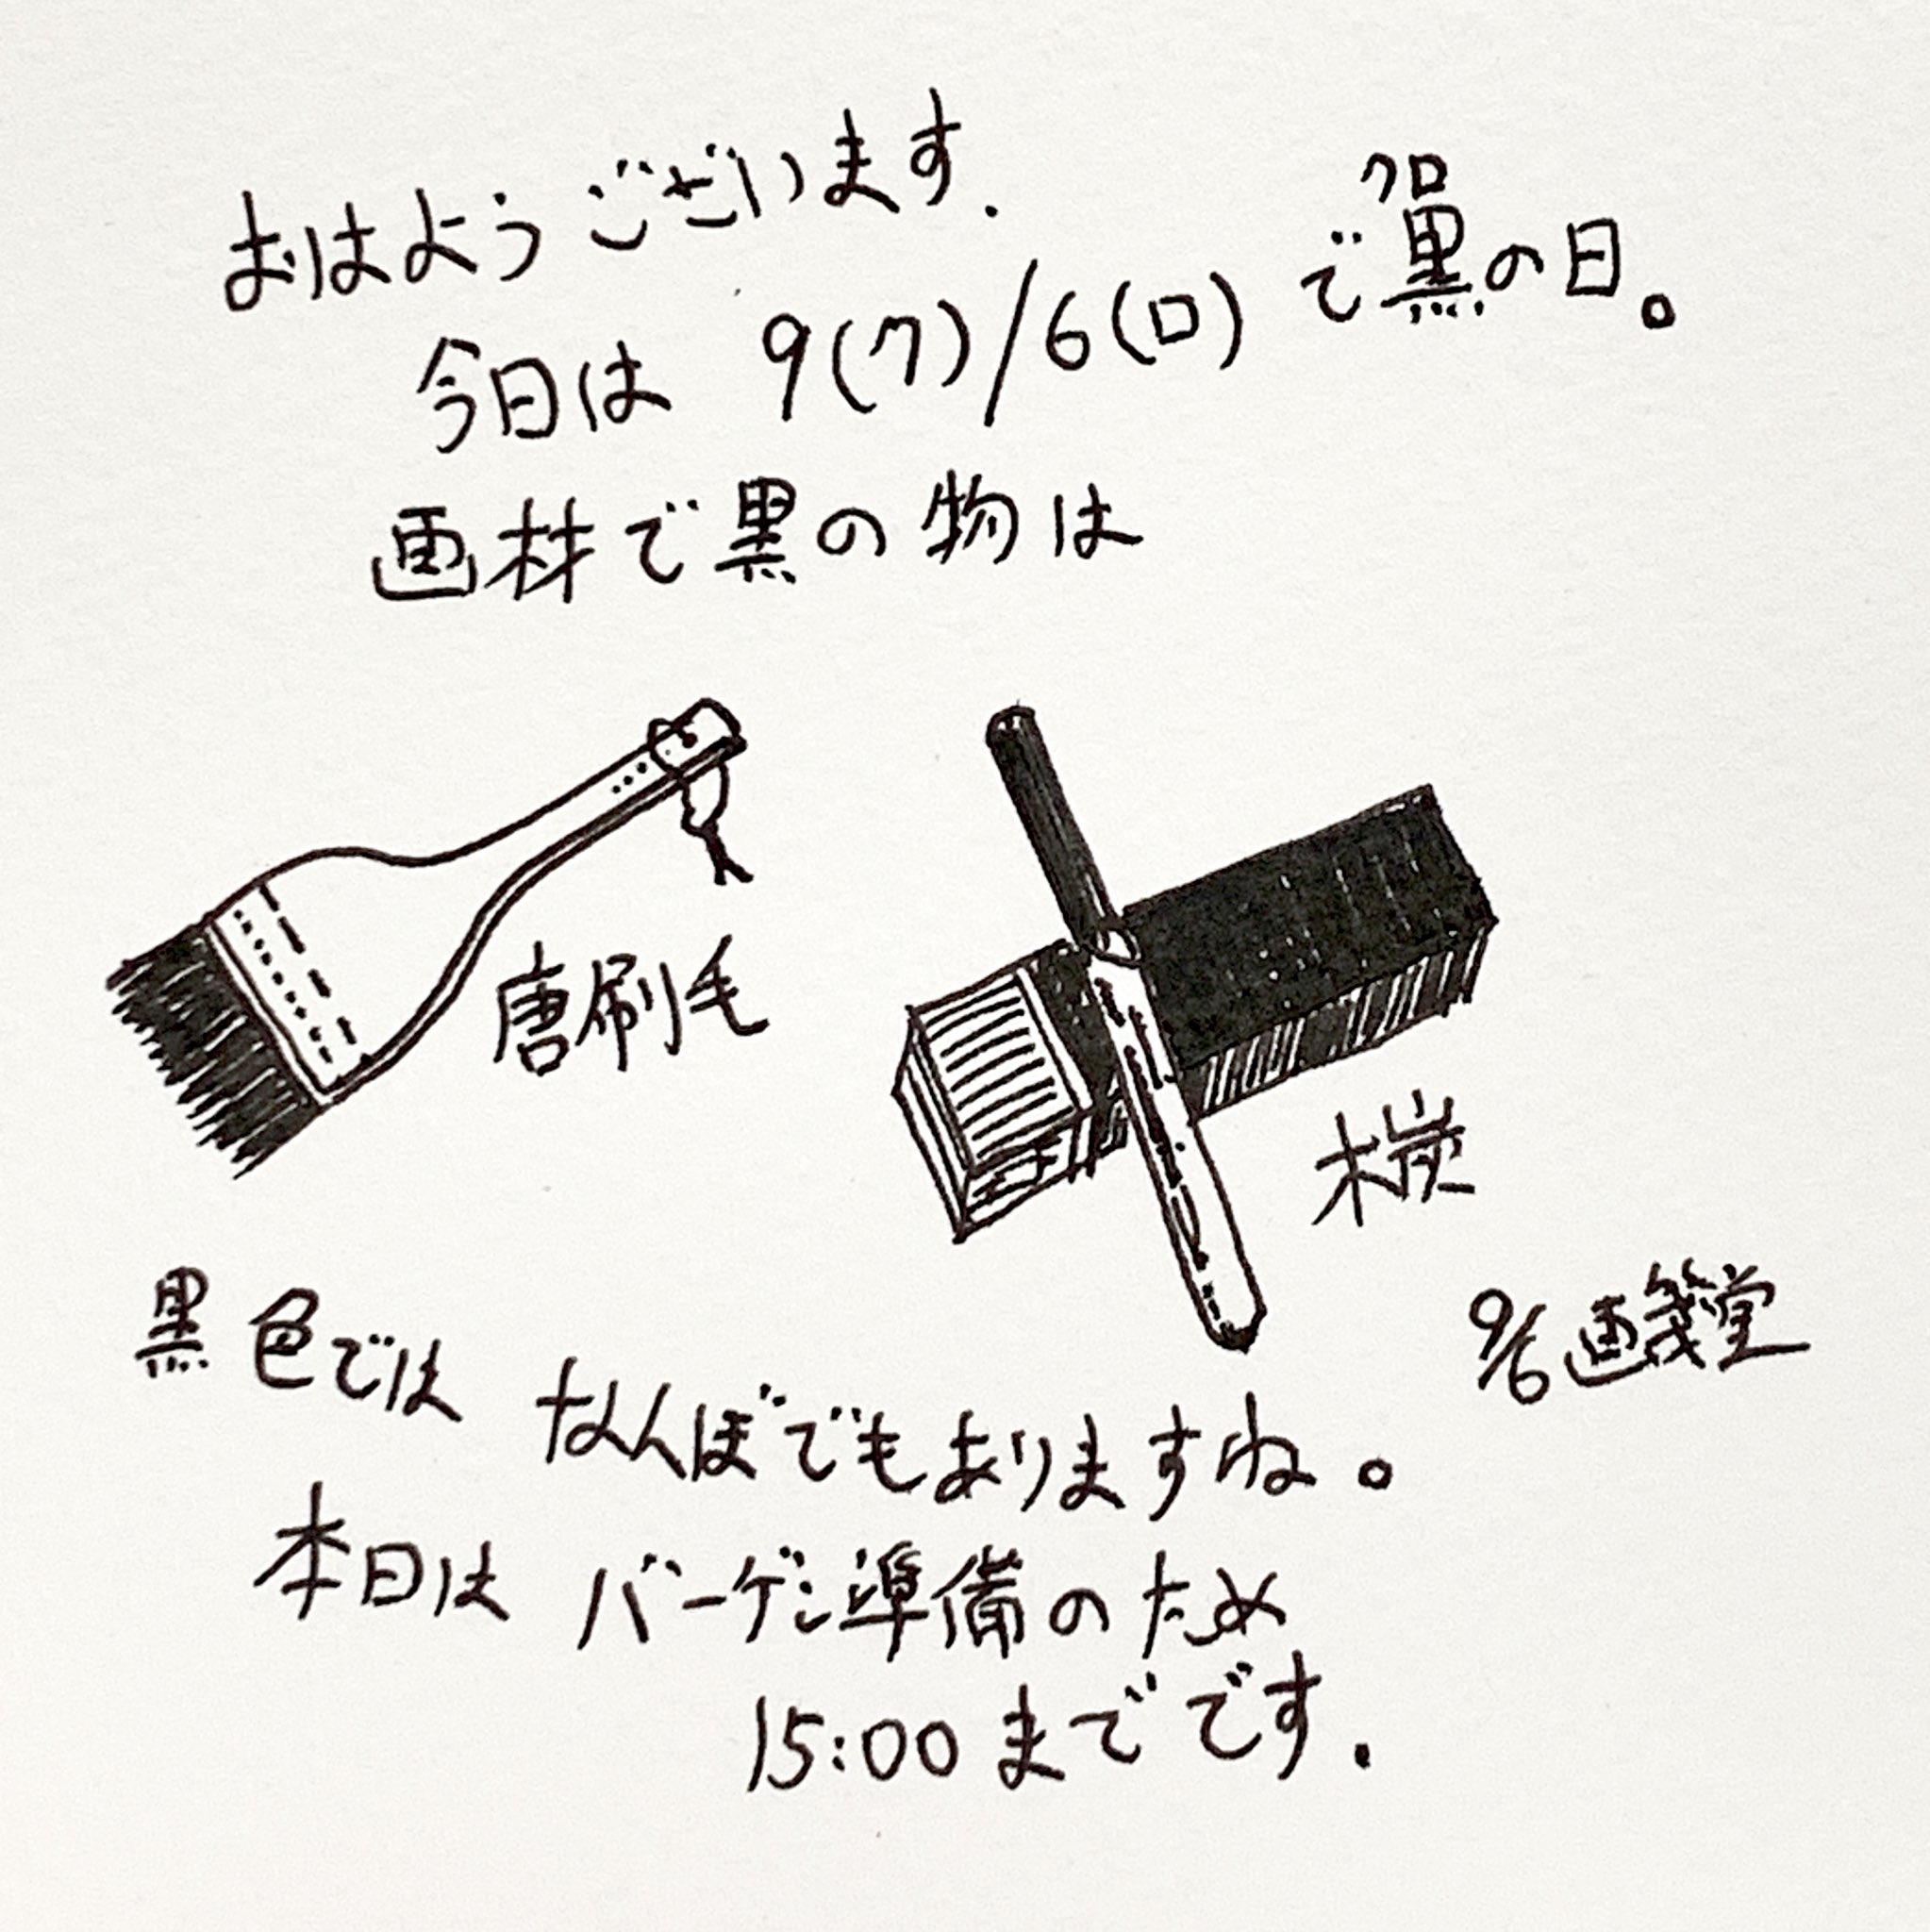 おはようございます.
今日は 9(ク)/6(ロ) で黒の日。
クロ
画材で黒の物は
唐刷毛
木炭
9/6 画箋堂
黒色では なんぼでもありますね。
本日は バーゲン準備のため
15:00 までです.